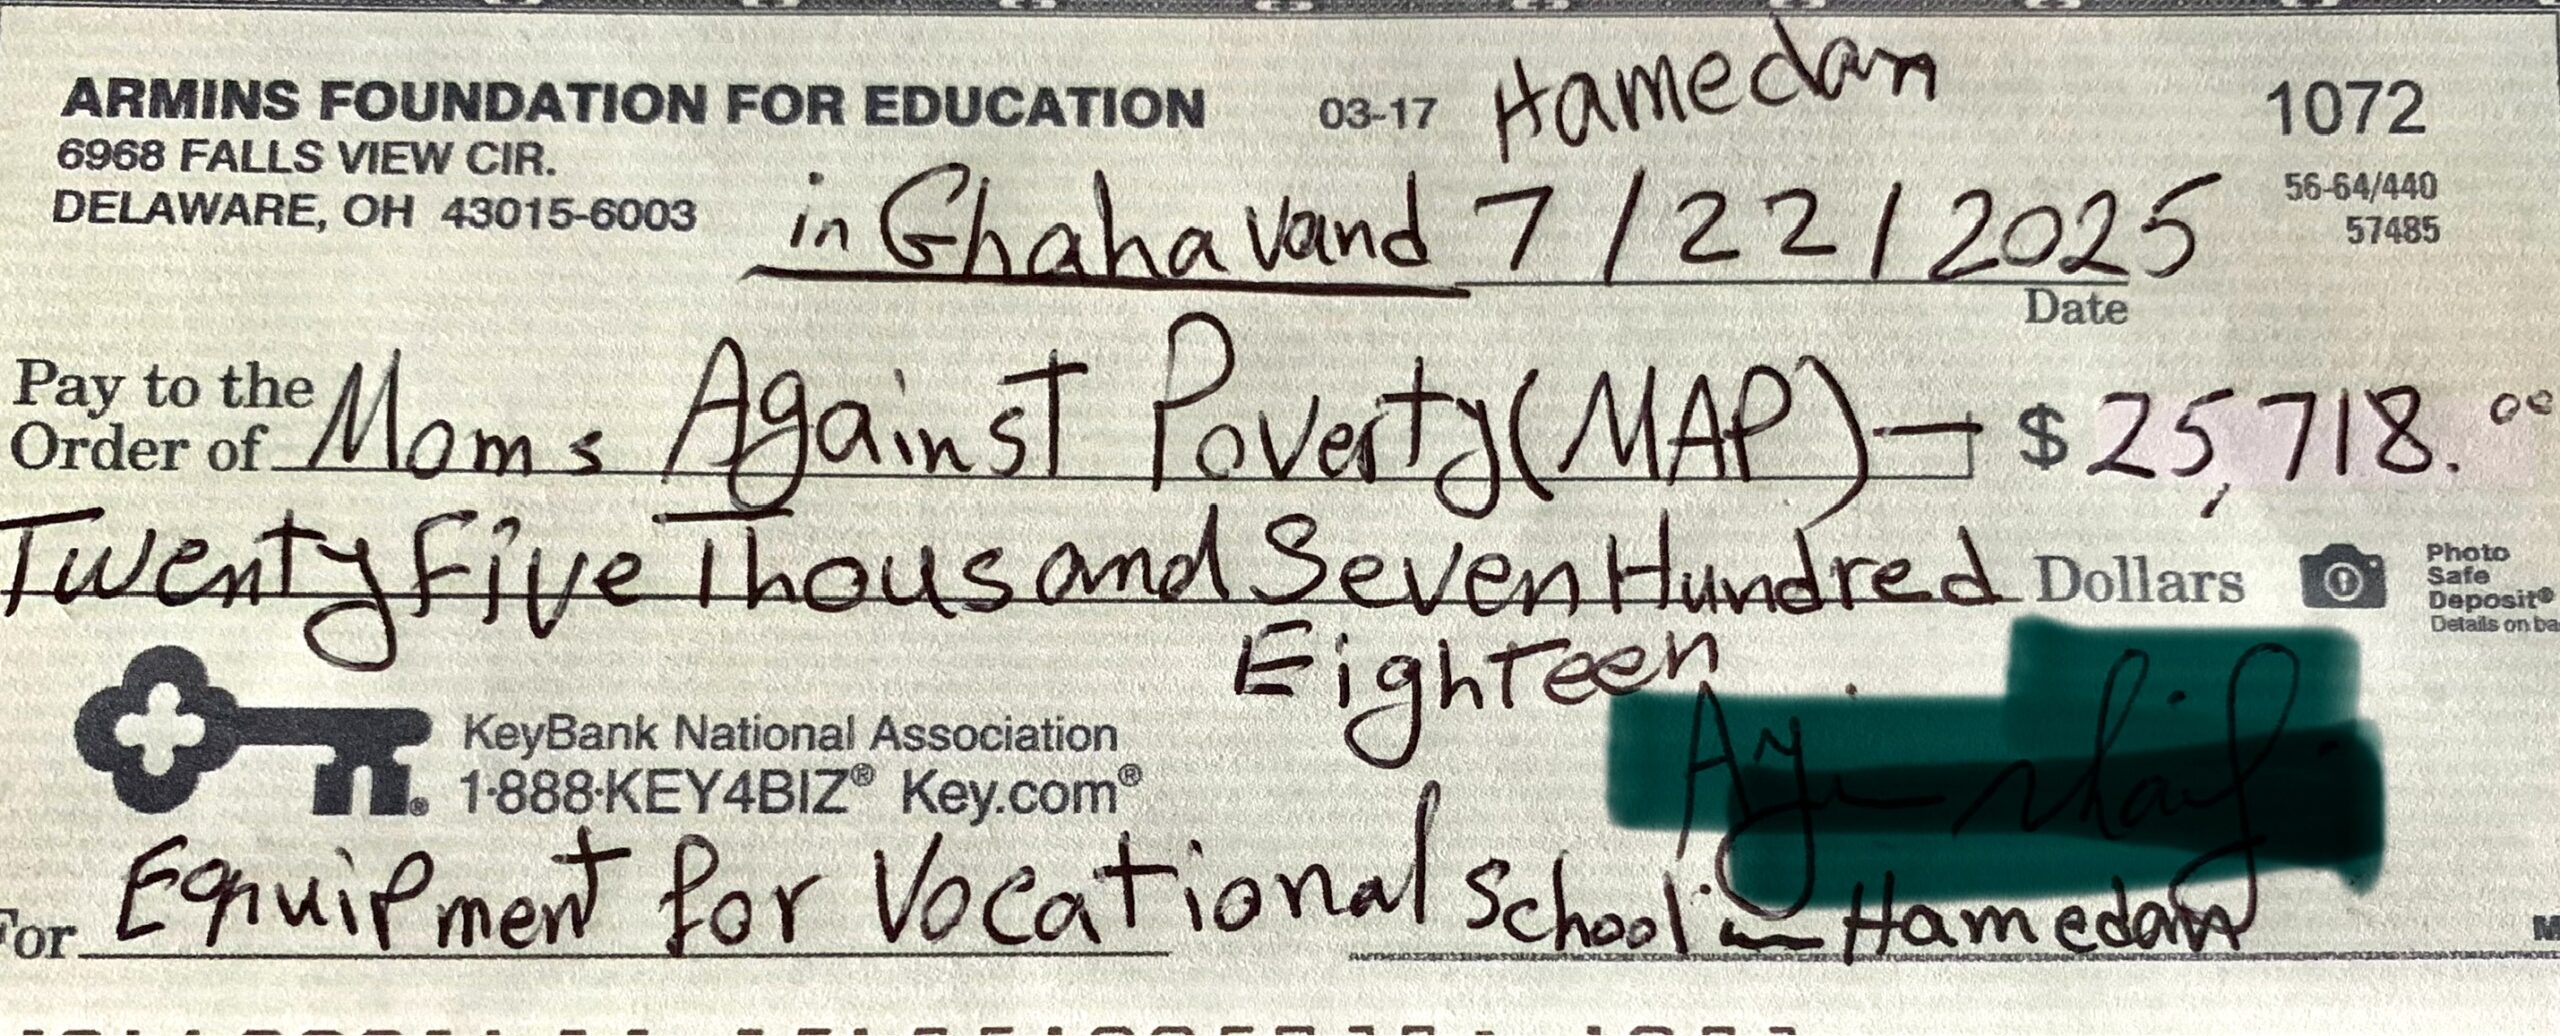 Hamedan
ARMINS FOUNDATION FOR EDUCATION 03-17 1072
6968 FALLS VIEW CIR. 56-64/440
DELAWARE, OH 43015-6003 in Ghahavand 7/22/2025 57485
Date
Pay to the Order of Moms Against Poverty (MAP) $ 25,718.00
Twenty five Thousand Seven Hundred Dollars
Eighteen
Photo
Safe
Deposit®
Details on ba
KeyBank National Association
1-888-KEY4BIZ® Key.com®
For Equipment for Vocational School - Hamedan